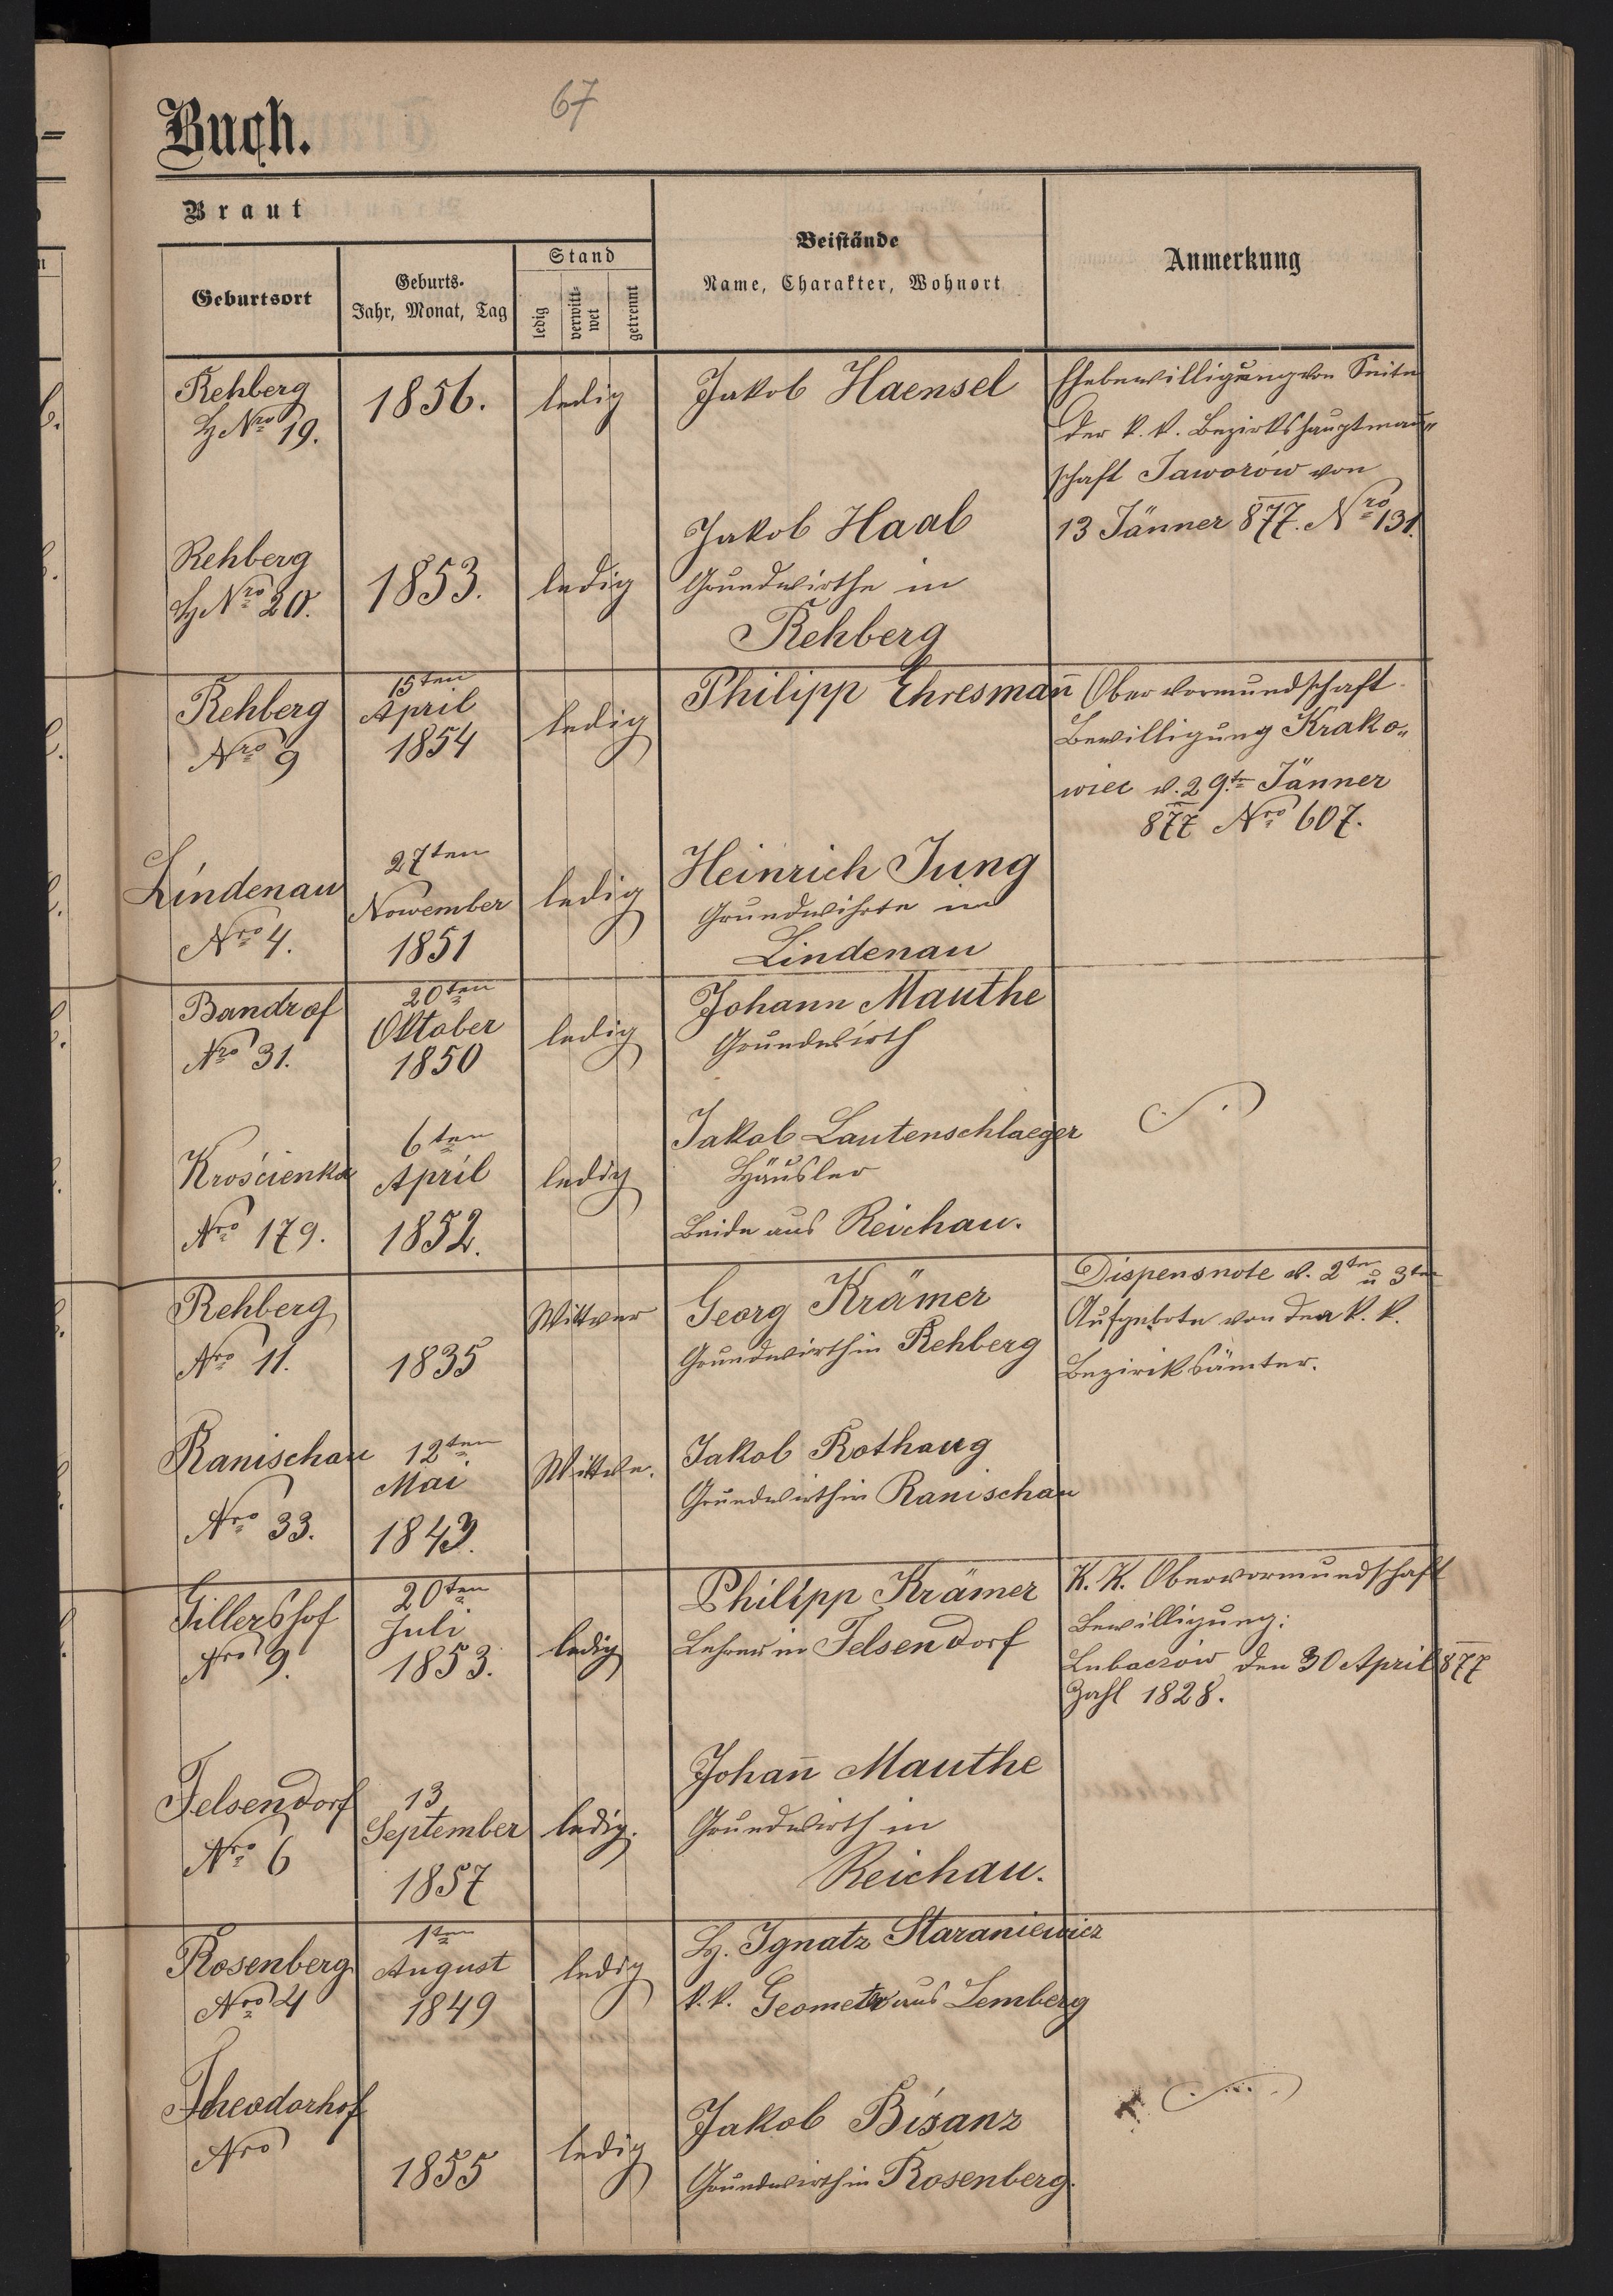 67
Buch.
Braut
Geburtsort
Geburts-
Jahr, Monat, Tag
Stand
ledig
verwitt-
wet
getrennt
Beistände
Name, Charakter, Wohnort
Anmerkung
Rehberg
H Nro 19.
1856.
ledig
Jakob Haensel
Ehebewilligung von Seite
der k. k. Bezirkshauptman„
schaft Jaworów von
13 Jänner 877. Nro 131.
Rehberg
H Nro 20.
1853.
ledig
Jakob Haab
Grundwirthe in
Rehberg
Rehberg
Nro 9
15ten
April
1854
ledig
Philipp Ehresman̄
Obervormundschaft
Bewilligung Krako„
wiec v. 29.ten Jänner
877 Nro 607.
Lindenau
Nro 4.
27ten
Nowember
1851
ledig
Heinrich Jung
Grundwihrte in
Lindenau
Bandrof
Nro 31.
20ten
Oktober
1850
ledig
Johann Mauthe
Grundwirth
Krościenko
Nro 179.
6ten
April
1852.
ledig
Jakob Lautenschlaeger
Häusler
Beide aus Reichau.
Rehberg
Nro 11.
1835
Wittwer
Georg Krämer
Grundwirth in Rehberg
Dispensnote v. 2ten u 3ten
Aufgebote von den k. k.
Bezirksämter.
Ranischau
Nro 33.
12ten
Mai
1843.
Wittwe.
Jakob Rothaug
Grundwirth in Ranischau
Gillershof
Nro 9.
20ten
Juli
1853.
ledig
Philipp Krämer
Lehrer in Felsendorf
K. K. Obervormundschaft
Bewilligung:
Lubaczów den 30 April 877
Zahl 1828.
Felsendorf
Nro 6
13
September
1857
ledig.
Johan̄ Mauthe
Grundwirth in
Reichau.
Rosenberg
Nro 4
1ten
August
1849
ledig
H. Ignatz Staraniewicz
k. k. Geometer aus Lemberg
Theodorhof
Nro
1855
ledig
Jakob Bisanz
Grundwirth in Rosenberg.